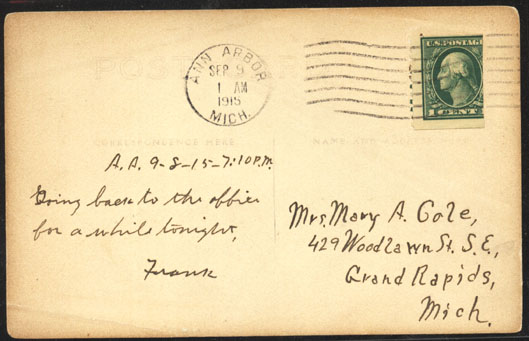 ANN ARBOR
SEP 9
1 AM
1915
MICH.
U.S. POSTAGE
1 CENT
CORRESPONDENCE HERE
NAME AND ADDRESS HERE
A.A. 9-8-15-7:10 P.M.
Going back to the office
for a while tonight,
Frank
Mrs. Mary A. Cole,
429 Woodlawn St. S.E.,
Grand Rapids,
Mich.